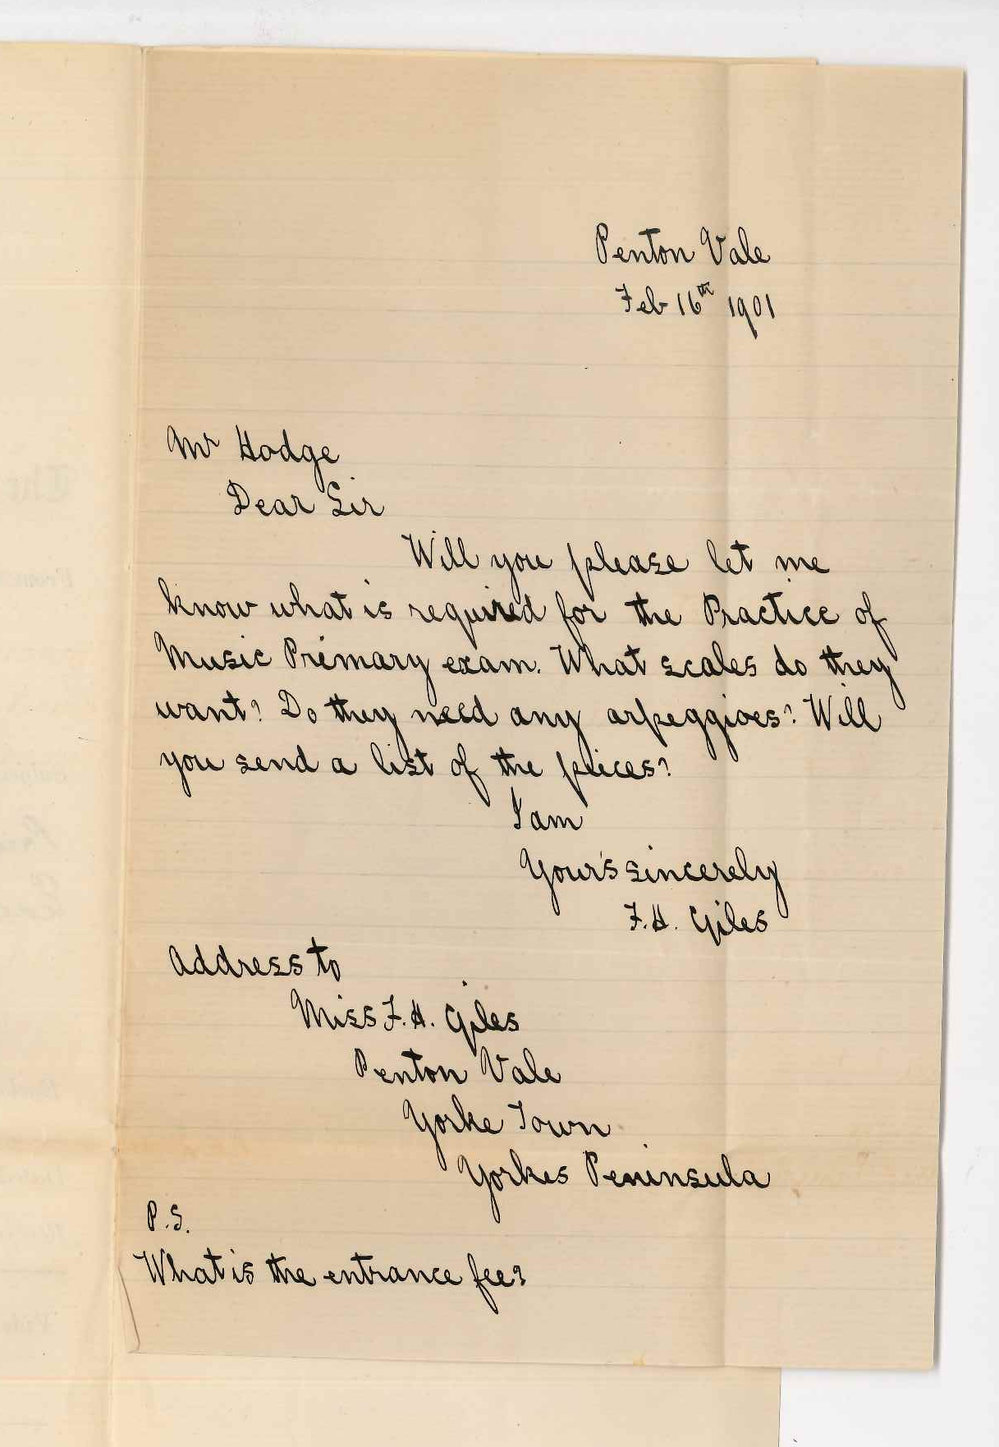 Penton Vale
Feb 16th 1901
Mr Hodge
Dear Sir
Will you please let me
know what is required for the Practice of
Music Primary exam. What scales do they
want? Do they need any arpeggioes? Will
you send a list of the pieces?
I am
Your's sincerely
F. H. Giles
Address to
Miss F. H. Giles
Penton Vale
Yorke Town
Yorkes Peninsula
P.S.
What is the entrance fee?